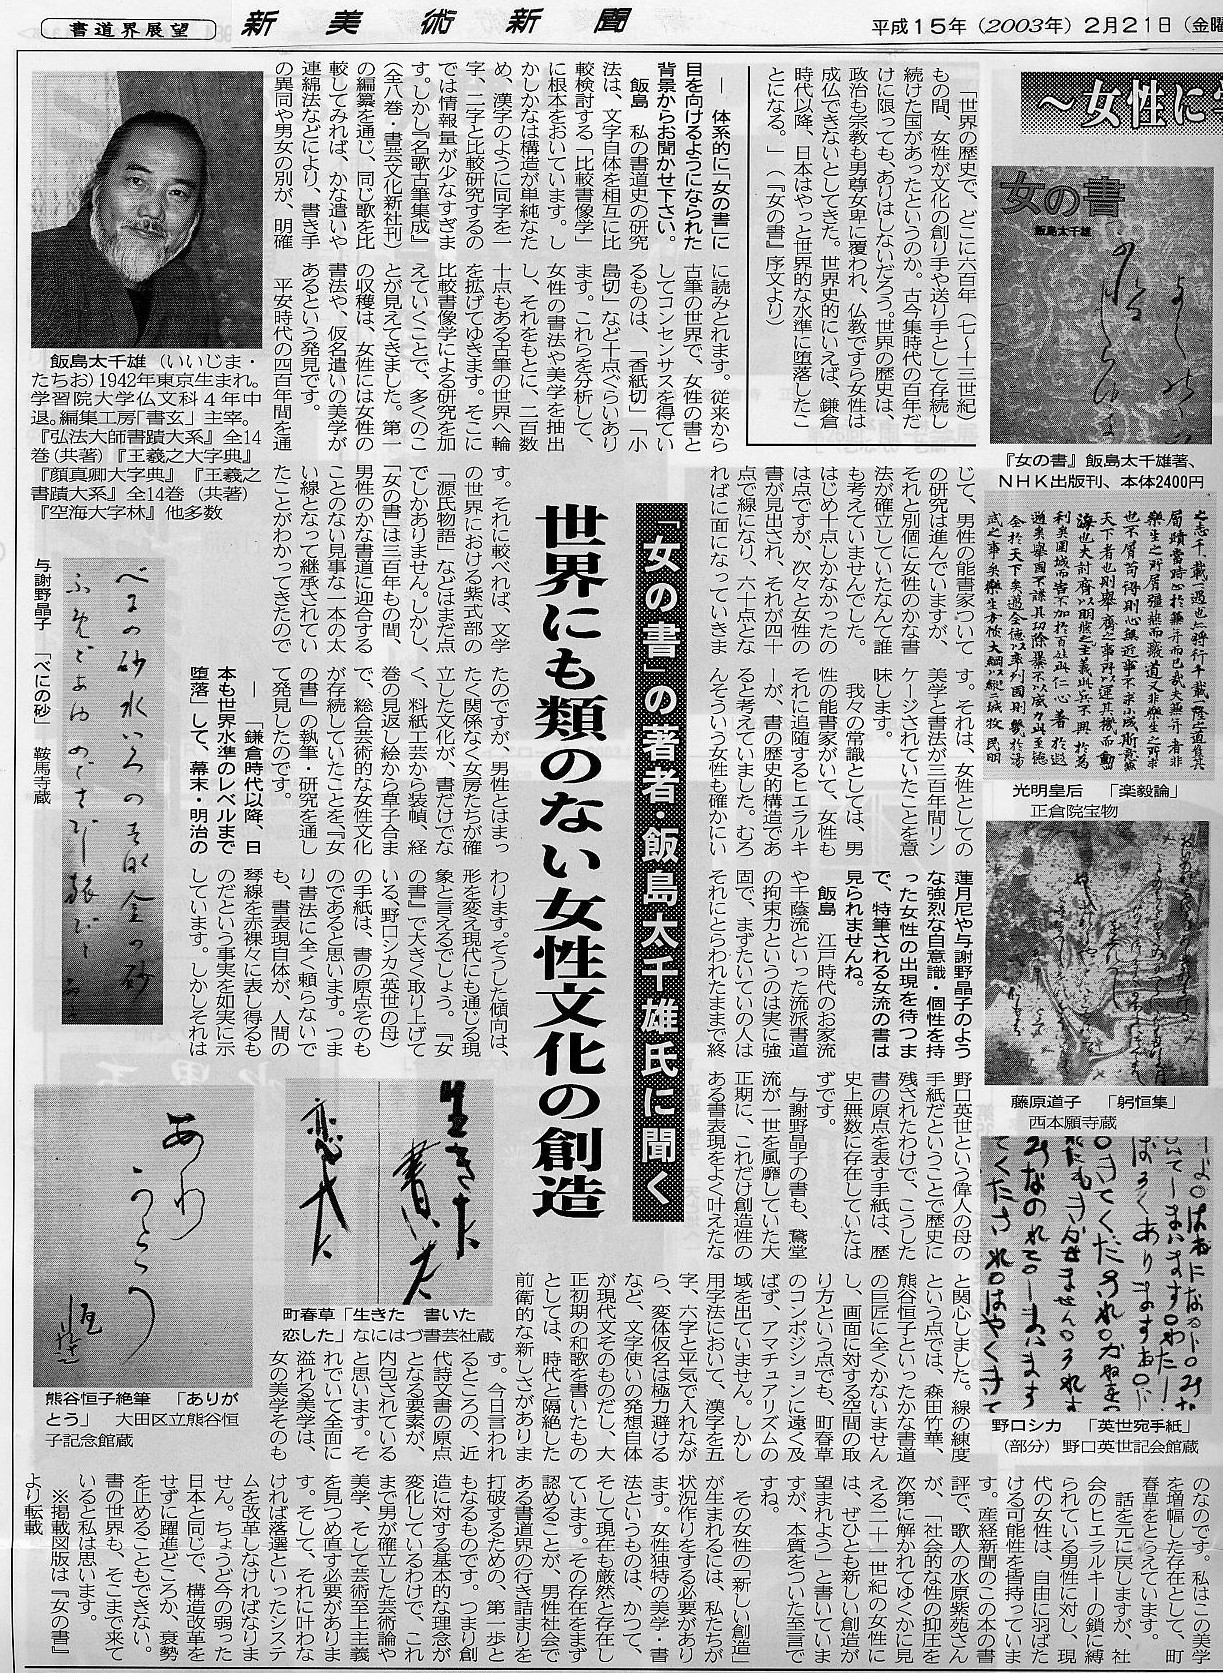 書道界展望
新美術新聞
平成15年（2003年）2月21日（金曜
～女性に
「世界の歴史で、どこに六百年（七～十三世紀）
もの間、女性が文化の創り手や送り手として存続し
続けた国があったというのか。古今集時代の百年だ
けに限っても、ありはしないだろう。世界の歴史は、
政治も宗教も男尊女卑に覆われ、仏教ですら女性は
成仏できないとしてきた。世界史的にいえば、鎌倉
時代以降、日本はやっと世界的な水準に堕落したこ
とになる。」（『女の書』序文より）
「女の書」の著者・飯島太千雄氏に聞く
世界にも類のない女性文化の創造
― 体系的に「女の書」に
目を向けるようになられた
背景からお聞かせ下さい。
飯島　私の書道史の研究
法は、文字自体を相互に比
較検討する「比較書像学」
に根本をおいています。し
かしかなは構造が単純なた
め、漢字のように同字を一
字、二字と比較研究するの
では情報量が少なすぎま
す。しかし『名歌古筆集成』
（全八巻・書芸文化新社刊）
の編纂を通じ、同じ歌を比
較してみれば、かな遣いや
連綿法などにより、書き手
の異同や男女の別が、明確
に読みとれます。従来から
古筆の世界で、女性の書と
してコンセンサスを得てい
るものは、「香紙切」「小
島切」など十点ぐらいあり
ます。これらを分析して、
女性の書法や美学を抽出
し、それをもとに、二百数
十点もある古筆の世界へ輪
を拡げてゆきます。そこに
比較書像学による研究を加
えていくことで、多くのこ
とが見えてきました。第一
の収穫は、女性には女性の
書法や、仮名遣いの美学が
あるという発見です。
平安時代の四百年間を通
じて、男性の能書家ついて
の研究は進んでいますが、
それと別個に女性のかな書
法が確立していたなんて誰
も考えていませんでした。
はじめ十点しかなかったの
は点ですが、次々と女性の
書が見出され、それが四十
点で線になり、六十点とな
ればに面になっていきま
す。それに較べれば、文学
の世界における紫式部の
『源氏物語』などはまだ点
でしかありません。しかし、
「女の書」は三百年もの間、
男性のかな書道に迎合する
ことのない見事な一本の太
い線となって継承されてい
たことがわかってきたので
す。それは、女性としての
美学と書法が三百年間リン
ケージされていたことを意
味します。
我々の常識としては、男
性の能書家がいて、女性も
それに追随するヒエラルキ
ーが、書の歴史的構造であ
ると考えていました。むろ
んそういう女性も確かにい
たのですが、男性とはまっ
たく関係なく女房たちが確
立した文化が、書だけでな
く、料紙工芸から装幀、経
巻の見返し絵から草子合ま
で、総合芸術的な女性文化
が存続していたことを『女
の書』の執筆・研究を通し
て発見したのです。
― 「鎌倉時代以降、日
本も世界水準のレベルまで
堕落」して、幕末・明治の
蓮月尼や与謝野晶子のよう
な強烈な自意識・個性を持
った女性の出現を待つま
で、特筆される女流の書は
見られませんね。
飯島　江戸時代のお家流
や千蔭流といった流派書道
の拘束力というのは実に強
固で、まずたいていの人は
それにとらわれたままで終
わります。そうした傾向は、
形を変え現代にも通じる現
象と言えるでしょう。『女
の書』で大きく取り上げて
いる、野口シカ（英世の母）
の手紙は、書の原点そのも
のであると思います。つま
り書法に全く頼らないで
も、書表現自体が、人間の
琴線を赤裸々に表し得るも
のだという事実を如実に示
しています。しかしそれは
野口英世という偉人の母の
手紙だということで歴史に
残されたわけで、こうした
書の原点を表す手紙は、歴
史上無数に存在していたは
ずです。
与謝野晶子の書も、鵞堂
流が一世を風靡していた大
正期に、これだけ創造性の
ある書表現をよく叶えたな
と関心しました。線の練度
という点では、森田竹華、
熊谷恒子といったかな書道
の巨匠に全くかないません
し、画面に対する空間の取
り方という点でも、町春草
のコンポジションに遠く及
ばず、アマチュアリズムの
域を出ていません。しかし
用字法において、漢字を五
字、六字と平気で入れなが
ら、変体仮名は極力避ける
など、文字使いの発想自体
が現代文そのものだし、大
正初期の和歌を書いたもの
としては、時代と隔絶した
前衛的な新しさがありま
す。今日言われ
るところの、近
代詩文書の原点
となる要素が、
内包されている
と思います。そ
れでいて全面に
溢れる美学は、
女の美学そのも
のなのです。私はこの美学
を増幅した存在として、町
春草をとらえています。
話を元に戻しますが、社
会のヒエラルキーの鎖に縛
られている男性に対し、現
代の女性は、自由に羽ばた
ける可能性を皆持っていま
す。産経新聞のこの本の書
評で、歌人の水原紫苑さん
が、「社会的な性の抑圧を
次第に解かれてゆくかに見
える二十一世紀の女性に
は、ぜひとも新しい創造が
望まれよう」と書いていま
すが、本質をついた至言で
すね。
その女性の「新しい創造」
が生まれるには、私たちが
状況作りをする必要があり
ます。女性独特の美学・書
法というものは、かつて、
そして現在も厳然と存在し
ています。その存在をまず
認めることが、男性社会で
ある書道界の行き詰まりを
打破するための、第一歩と
もなるものです。つまり創
造に対する基本的な理念が
変化しているわけで、これ
まで男が確立した芸術論や
美学、そして芸術至上主義
を見つめ直す必要がありま
す。そして、それに叶わな
ければ落選といったシステ
ムを改革しなければなりま
せん。ちょうど今の弱った
日本と同じで、構造改革を
せずに躍進どころか、衰勢
を止めることもできない。
書の世界も、そこまで来て
いると私は思います。
※掲載図版は『女の書』
より転載
飯島太千雄（いいじま・
たちお）1942年東京生まれ。
学習院大学仏文科４年中
退。編集工房「書玄」主宰。
『弘法大師書蹟大系』全14
巻（共著）『王羲之大字典』
『顔真卿大字典』『王羲之
書蹟大系』全14巻（共著）
『空海大字林』他多数
女の書
飯島太千雄
『女の書』飯島太千雄著、
ＮＨＫ出版刊、本体2400円
光明皇后　「楽毅論」
正倉院宝物
藤原道子　「躬恒集」
西本願寺蔵
野口シカ　「英世宛手紙」
（部分）野口英世記念館蔵
与謝野晶子　「べにの砂」　鞍馬寺蔵
生きた
書いた
恋した
町春草「生きた　書いた
恋した」なにはづ書芸社蔵
ありか
とう
恒
熊谷恒子絶筆　「ありが
とう」　大田区立熊谷恒
子記念館蔵